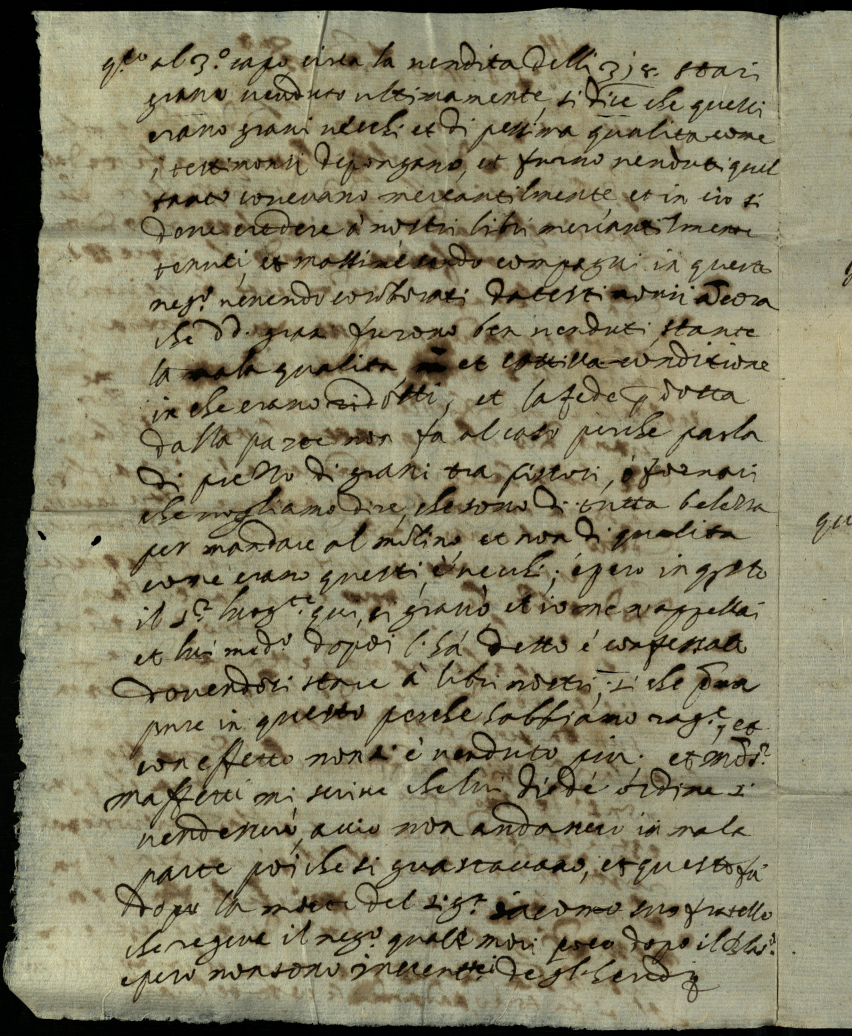 q.to al 3.º capo circa la vendita delli 318. stari
grano venduto ultimamente, si dice che questi
erano grani vecchi et di pessima qualita come
i testimonii depongano, et furno venduti quel
tanto valevano mercantilmente et in ciò si
deve credere à nostri libri mercantilmente
tenuti, et massime essendo compagni in questo
neg.º venendo coroborati da testimonii ancora
che dd. grani furono ben venduti stante
la mala qualita et cattiva conditione
in che erano ridotti, et la fede dotta
dalla parte non fa al caso perche parla
di prezzo di grani tra pistori, ò fornari
che vogliamo dire, che sono di tutta belezza
per mandare al molino et non di qualita
come erano questi, è vecchi; è pero in questo
il s.r luog.te qui, si gravò et io me n'appellai
et lui med.º dopoi l'hà detto è confessato
dovendosi stare à libri nostri, si che
pure in questo perche habbiamo rag.e, et
con effetto non è venduto piu. et
Maffetti mi scrive che lui diede ordine si
vendessero, acciò non andassero in mala
parte poi che si guastavano, et questo fu
dopo la morte del sig.r Iacomo suo fratello
che regeva il neg.º quale morì poco dopo il
è pero non sono